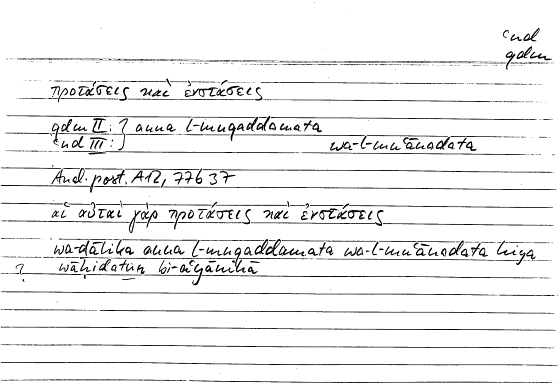 ʿnd
qdm
προτάσεις καὶ ἐνστάσεις
qdm II: } anna l-muqaddamata
ʿnd III: } wa-l-muʿānadata
And. post. A12, 77b37
αἱ αὐταὶ γὰρ προτάσεις καὶ ἐνστάσεις
wa-ḏālika anna l-muqaddamata wa-l-muʿānadata hiya
? wāḥidatun bi-aʿyānihā